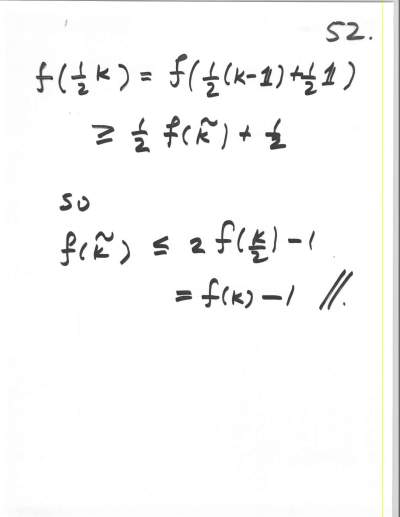 52.
f(½k) = f(½(k-1)+½1)
≥ ½ f(k̃) + ½
so
f(k̃) ≤ 2 f(k/2) - 1
= f(k) - 1 //.